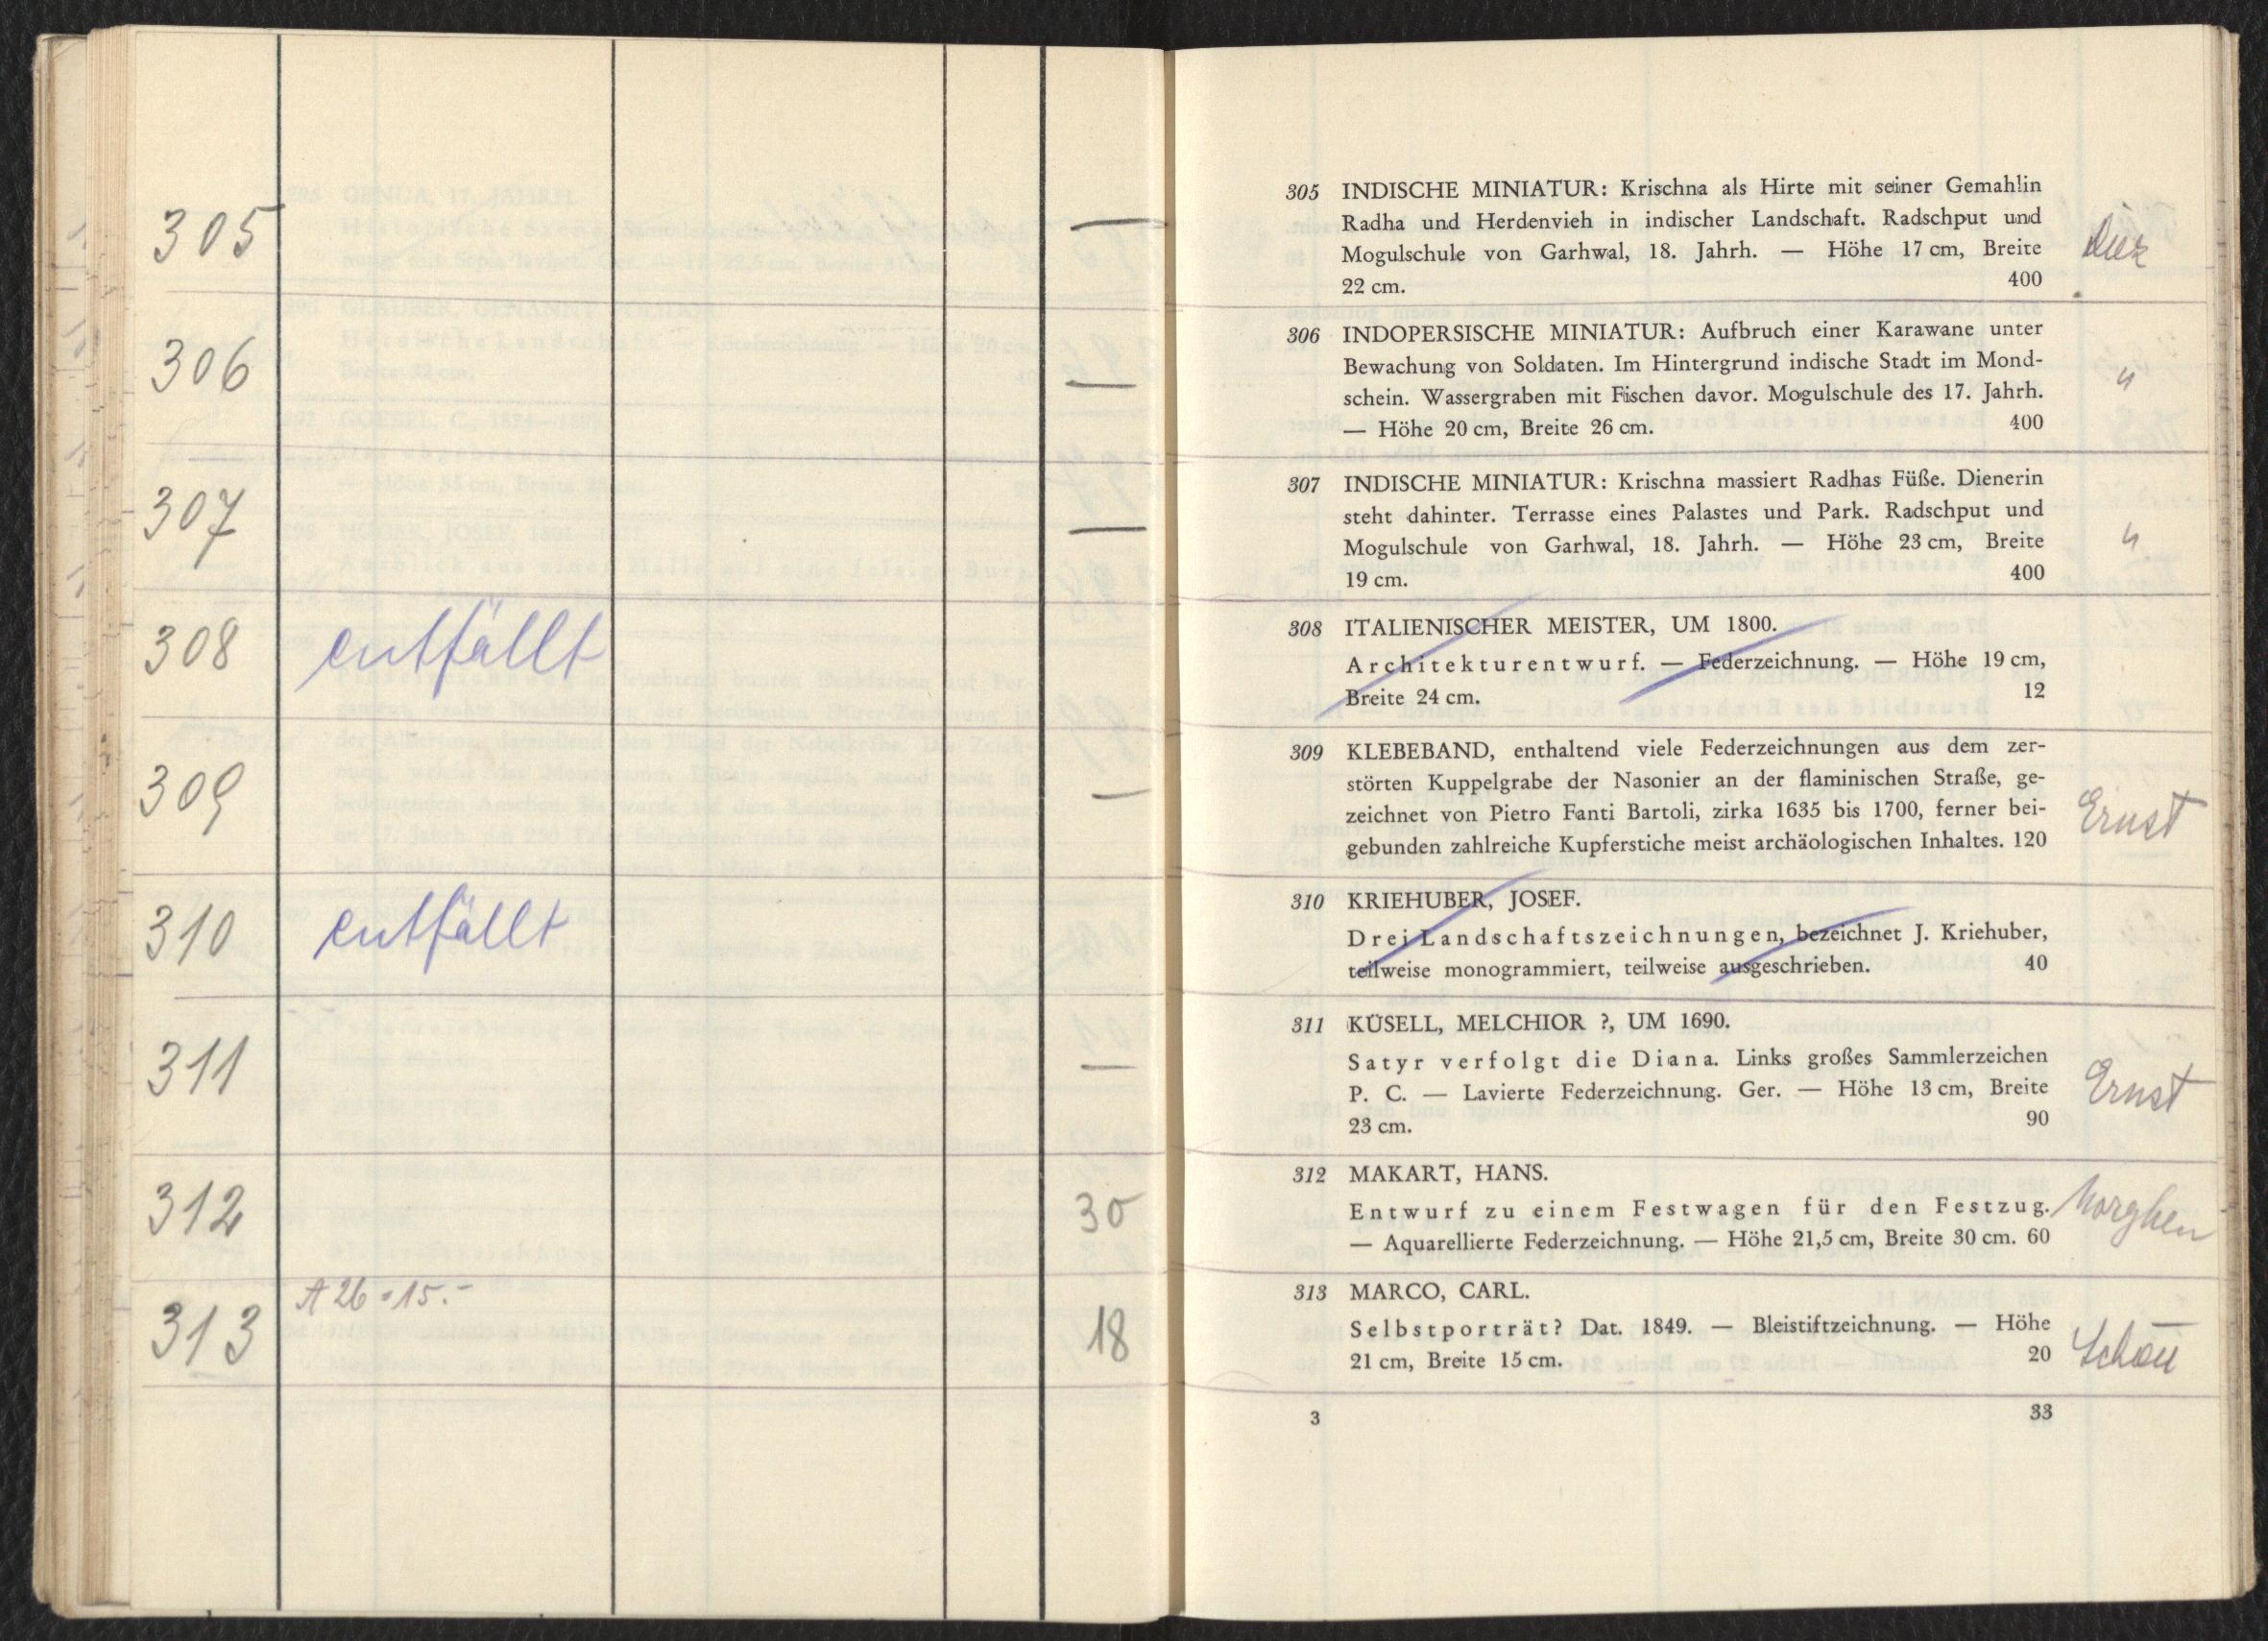 305
—
306
—
307
—
308 entfällt
309
—
310 entfällt
311
—
312
30
A 26 = 15.-
313
18
305 INDISCHE MINIATUR: Krischna als Hirte mit seiner Gemahlin
Radha und Herdenvieh in indischer Landschaft. Radschput und
Mogulschule von Garhwal, 18. Jahrh. — Höhe 17 cm, Breite
22 cm. 400
306 INDOPERSISCHE MINIATUR: Aufbruch einer Karawane unter
Bewachung von Soldaten. Im Hintergrund indische Stadt im Mond-
schein. Wassergraben mit Fischen davor. Mogulschule des 17. Jahrh.
— Höhe 20 cm, Breite 26 cm. 400
"
307 INDISCHE MINIATUR: Krischna massiert Radhas Füße. Dienerin
steht dahinter. Terrasse eines Palastes und Park. Radschput und
Mogulschule von Garhwal, 18. Jahrh. — Höhe 23 cm, Breite
19 cm. 400
"
308 ITALIENISCHER MEISTER, UM 1800.
Architekturentwurf. — Federzeichnung. — Höhe 19 cm,
Breite 24 cm. 12
309 KLEBEBAND, enthaltend viele Federzeichnungen aus dem zer-
störten Kuppelgrabe der Nasonier an der flaminischen Straße, ge-
zeichnet von Pietro Fanti Bartoli, zirka 1635 bis 1700, ferner bei-
gebunden zahlreiche Kupferstiche meist archäologischen Inhaltes. 120
Ernst
310 KRIEHUBER, JOSEF.
Drei Landschaftszeichnungen, bezeichnet J. Kriehuber,
teilweise monogrammiert, teilweise ausgeschrieben. 40
311 KÜSELL, MELCHIOR ?, UM 1690.
Satyr verfolgt die Diana. Links großes Sammlerzeichen
P. C. — Lavierte Federzeichnung. Ger. — Höhe 13 cm, Breite
23 cm. 90
Ernst
312 MAKART, HANS.
Entwurf zu einem Festwagen für den Festzug.
— Aquarellierte Federzeichnung. — Höhe 21,5 cm, Breite 30 cm. 60
Morghen
313 MARCO, CARL.
Selbstporträt? Dat. 1849. — Bleistiftzeichnung. — Höhe
21 cm, Breite 15 cm. 20
3 33